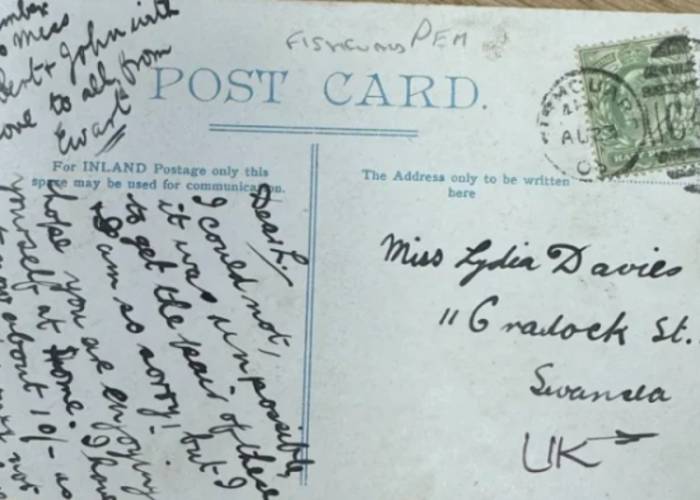 FISHGUARD PEM
POST CARD.
For INLAND Postage only this
space may be used for communication.
The Address only to be written
here
Miss Lydia Davies
11 Cradock St.
Swansea
UK
Dear L.
I could not,
it was impossible
to get the pair of these
I am so sorry! but I
hope you are enjoying
yourself at home. I have
about 10/- as
to Miss
& John with
love to all from
Ewart
AU 23